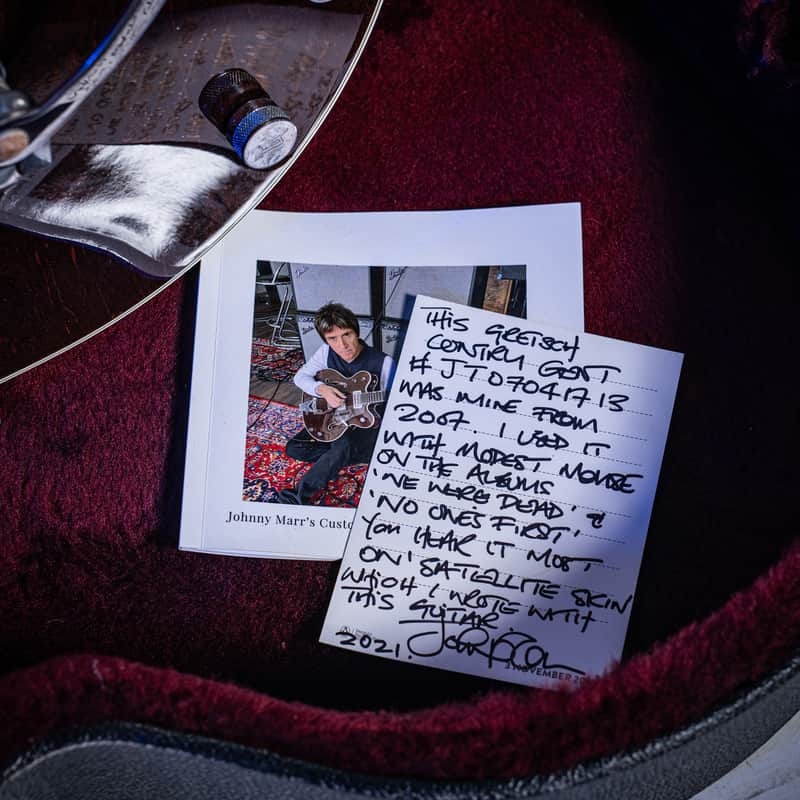 Johnny Marr's Custo
THIS GRETSCH
CONTRY GENT
# JT07041713
WAS MINE FROM
2007. I USED IT
WITH MODEST MOUSE
ON THE ALBUMS
'WE WERE DEAD' &
'NO ONE'S FIRST'.
YOU HEAR IT MOST
ON 'SATELLITE SKIN
WHICH I WROTE WITH
THIS GUITAR
2021.
3 NOVEMBER 20